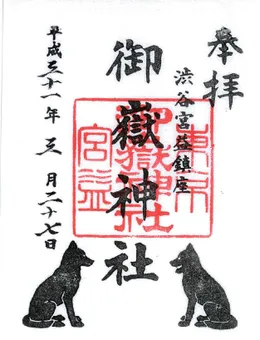 奉拝
渋谷宮益鎮座
御嶽神社
平成三十一年三月二十七日
東京
御嶽神社
宮益